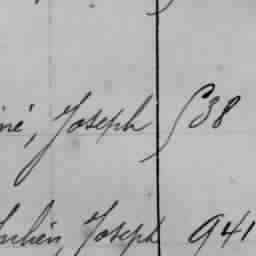 né, Joseph 538
Julien, Joseph 941